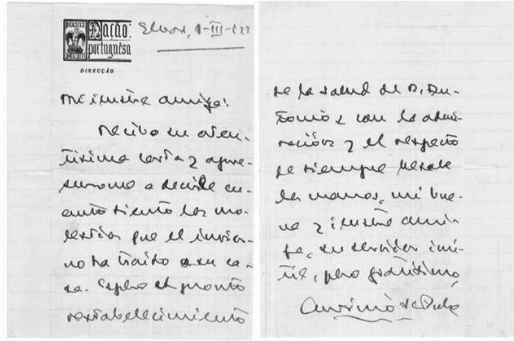 Nação
portuguesa
DIRECÇÃO
Elvas, 1-III-922
Mi ilustre amiga:
Recibo su aten-
tísima carta y apre-
surome a decirle cu-
anto siento las mo-
lestias que el invier-
no ha traido a su ca-
sa. Espero el pronto
restabelecimiento
de la salud de D. An-
tonio y con la admi-
ración y el respeto
de siempre besale
las manos, mi bue-
na y ilustre ami-
ga, su servidor inú-
til, pero gratísimo,